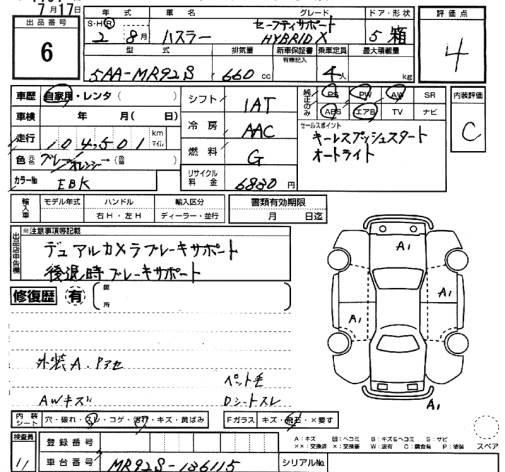 7月17日
出品番号
6
年式
車名
グレード
ドア・形状
評価点
S・H・R
2 8月
ハスラー
セーフティサポート
HYBRID X
5 箱
4
型式
排気量
新車保証書
有無記入
乗車定員
最大積載量
5AA-MR92S
660 cc
4人
kg
車歴 自家用・レンタ ( )
車検 年 月( 日)
走行 104,501 km マイル
色 元色 グレー/オレンジ (色替 )
カラーNo EBK
シフト 1AT
冷房 AAC
燃料 G
リサイクル料金 6830 円
純正のみ
PS PW AW SR
ABS エアB TV ナビ
セールスポイント
キーレスプッシュスタート
オートライト
内装評価
C
輸入車
モデル年式 ハンドル 輸入区分
右H・左H ディーラー・並行
書類有効期限
月 日迄
出品店申告欄
※注意事項等記載
デュアルカメラブレーキサポート
後退時ブレーキサポート
修復歴 有
箇所
A1
A1
A1
外装A.アセ
ペット毛
AWキズ
Dシートスレ
内装シート 穴・破れ・スレ・コゲ・汚れ・キズ・黄ばみ
Fガラス キズ・飛石・×要す
A:キズ 凹:ヘコミ B:キズ&ヘコミ S:サビ
××:交換済 ×:交換要 W:波有 C:腐食有 P:塗装
スペア
検査員
11
登録番号
車台番号 MR92S-136115
シリアルNo.